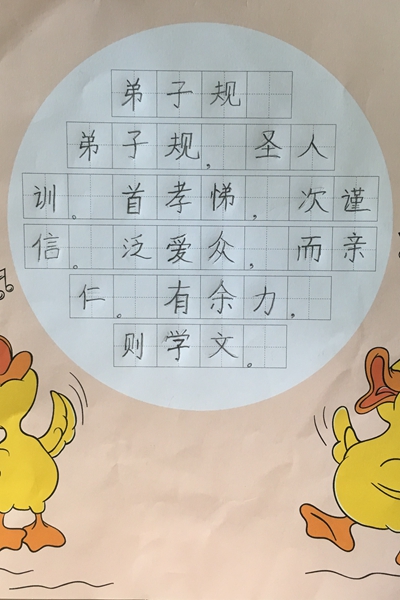 弟子规
弟子规，圣人
训。首孝悌，次谨
信。泛爱众，而亲
仁。有余力，
则学文。